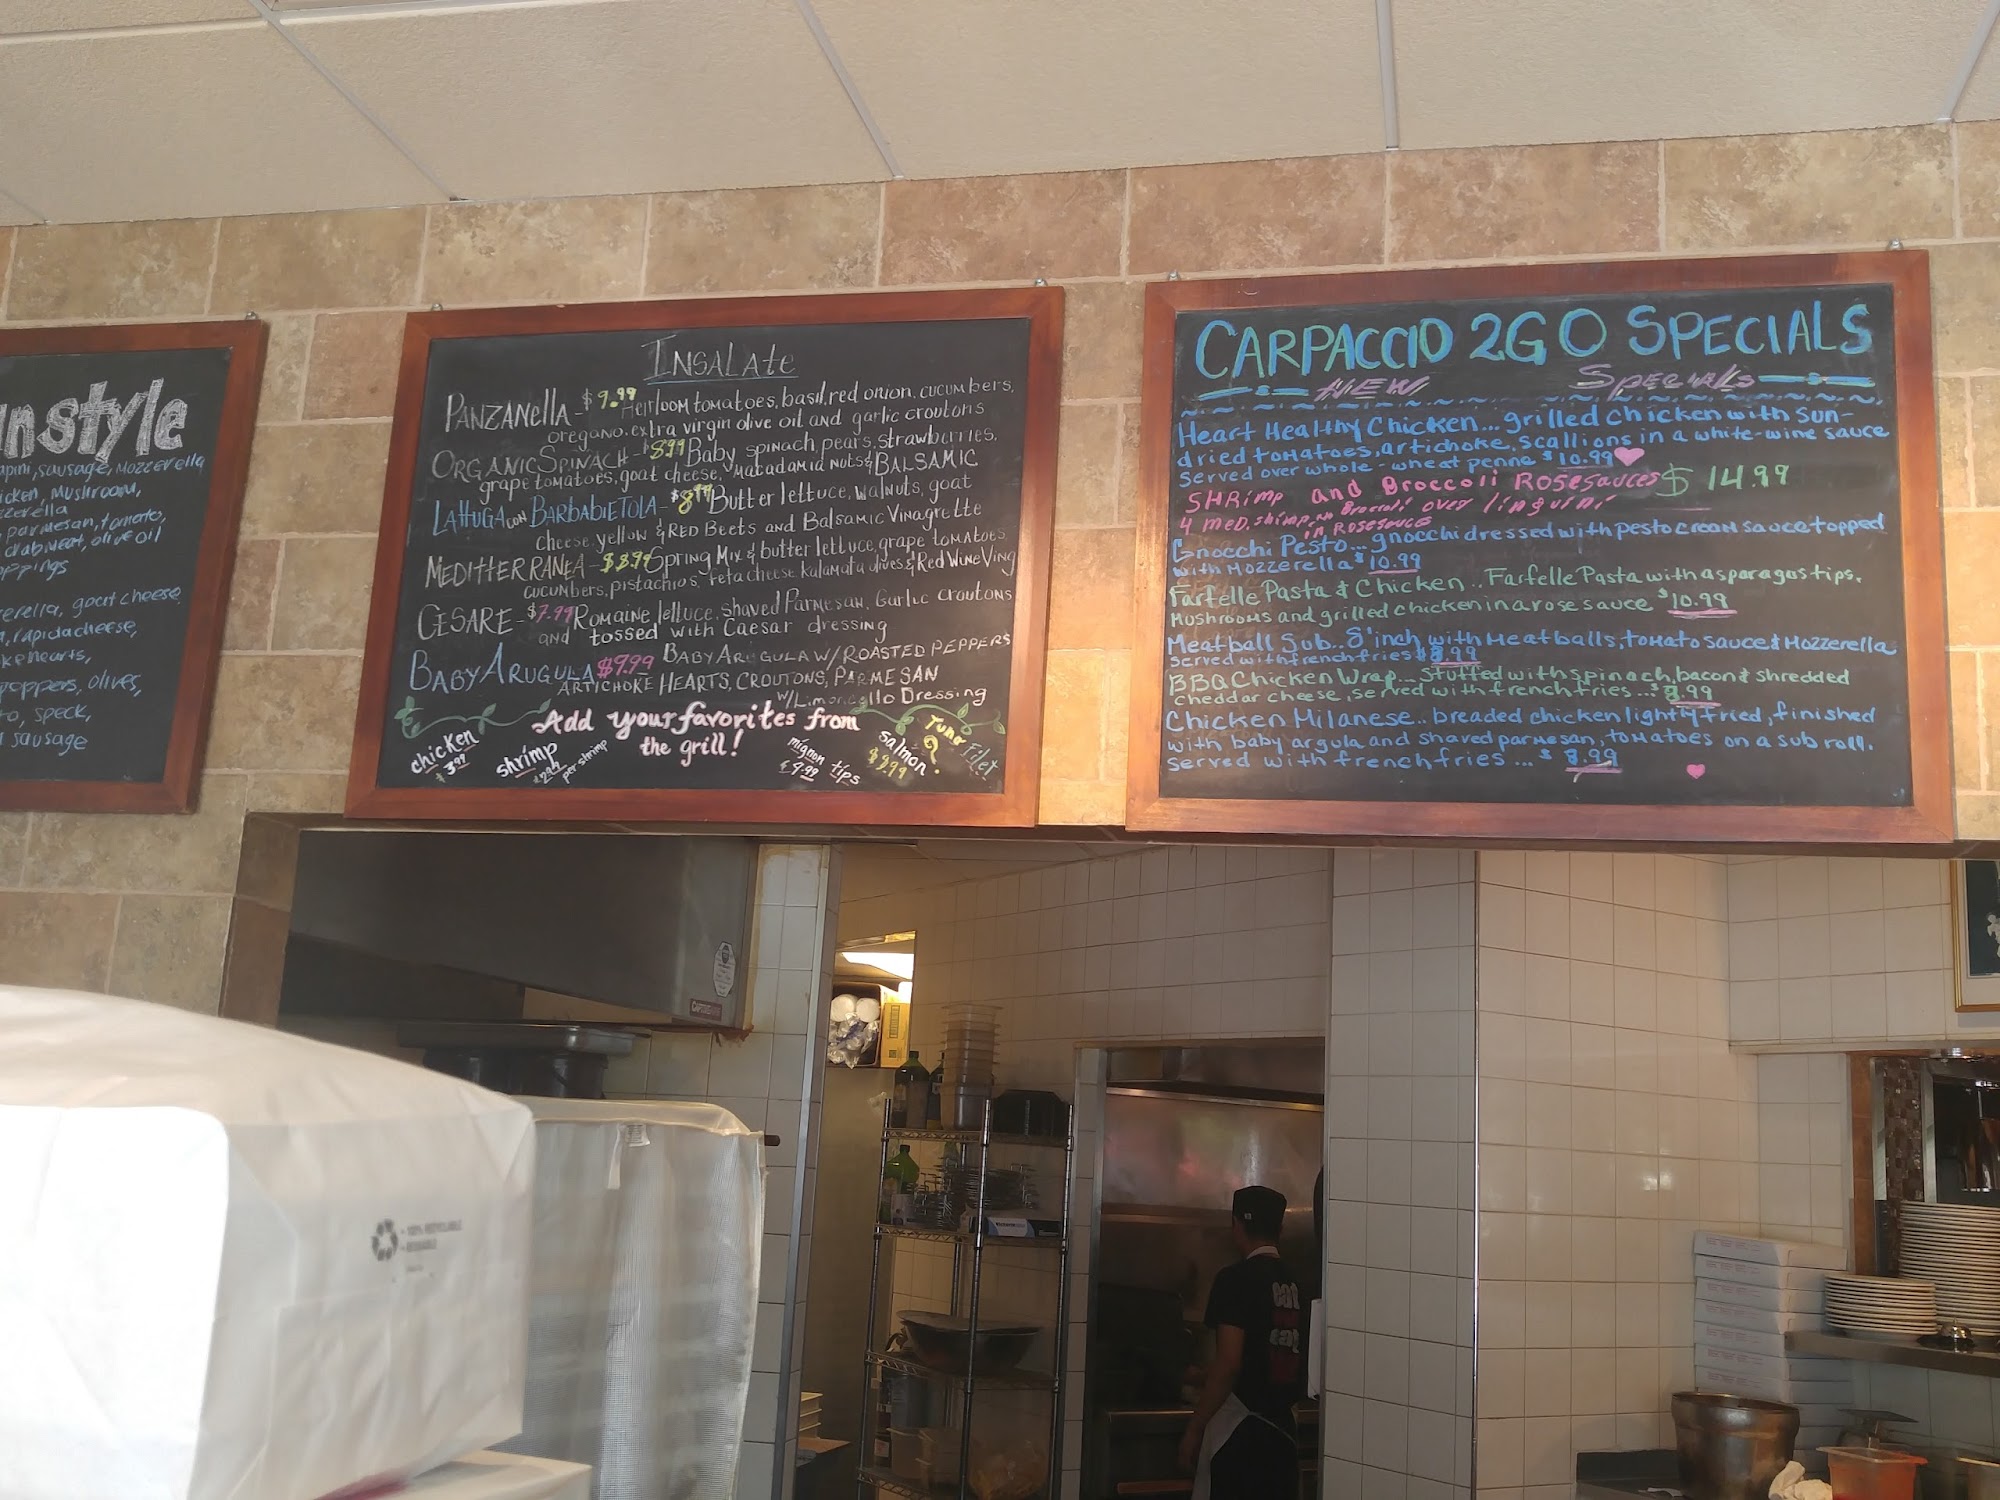 nstyle
apini, sausage, Mozzerella
icken, Mushroom,
zzerella
parmesan, tomatoes,
crabmeat, olive oil
oppings
erella, goat cheese,
rapida cheese,
ke hearts,
peppers, olives,
to, speck,
sausage
INSALATE
PANZANELLA - $9.99 Heirloom tomatoes, basil, red onion, cucumbers,
oregano, extra virgin olive oil and garlic croutons
ORGANIC SPINACH - $8.99 Baby spinach, pears, strawberries,
grape tomatoes, goat cheese, macadamia nuts & BALSAMIC
LATTUGA CON BARBABIETOLA - Butter lettuce, walnuts, goat
cheese, yellow & RED BEETS AND Balsamic Vinagrette
MEDITTERRANEA - $8.99 Spring Mix & butter lettuce, grape tomatoes,
cucumbers, pistachios, feta cheese, kalamata olives & Red Wine Ving
CESARE - $7.99 Romaine lettuce, shaved Parmesan, Garlic croutons
and tossed with Caesar dressing
BABY ARUGULA $9.99 BABY ARUGULA W/ ROASTED PEPPERS
ARTICHOKE HEARTS, CROUTONS, PARMESAN
W/Limoncello Dressing
Add your favorites from
the grill!
chicken
$3.99
shrimp
per shrimp
mignon tips
9.99
salmon
$9.99
Tuna Filet
CARPACCIO 2GO SPECIALS
NEW Specials
Heart Healthy Chicken... grilled chicken with Sun-
dried tomatoes, artichoke, scallions in a white-wine sauce
served over whole-wheat penne $10.99
SHRimp and Broccoli Rose sauces $14.99
4 med. shrimp, Broccoli over linguini
in Rose sauce
Gnocchi Pesto... gnocchi dressed with pesto cream sauce topped
with Mozzerella $10.99
Farfelle Pasta & Chicken.. Farfelle Pasta with asparagus tips,
Mushrooms and grilled chicken in a rose sauce $10.99
Meatball Sub.. 8" inch with Meatballs, tomato sauce & Mozzerella
served with french fries $8.99
BBQ Chicken Wrap... stuffed with spinach, bacon & shredded
cheddar cheese, served with french fries ...
Chicken Milanese.. breaded chicken lightly fried, finished
with baby argula and shaved parmesan, tomatoes on a sub roll.
served with french fries ... $8.99
100% RECYCLABLE
REUSABLE
eat
eat